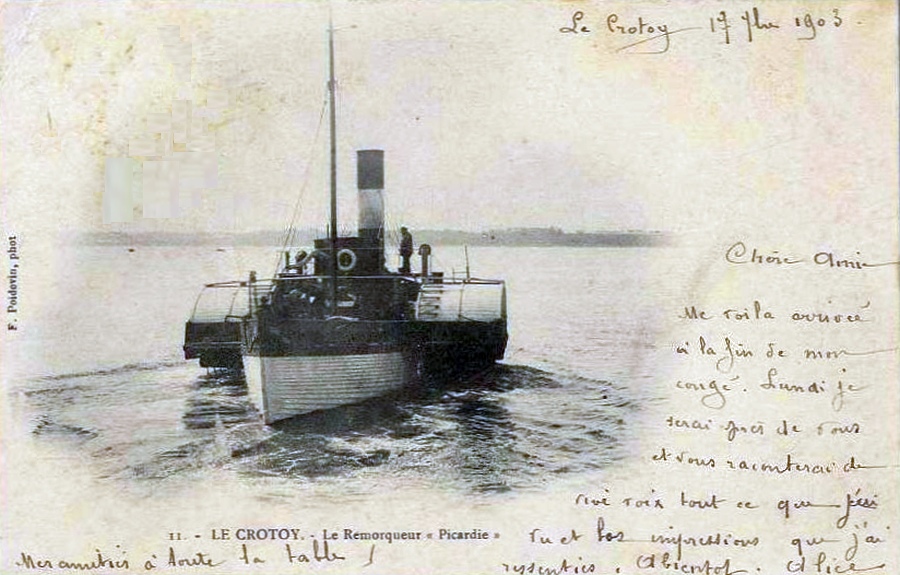 Le Crotoy 17 7bre 1903.
Chère Amie
Me voila arrivée
à la fin de mon
congé. Lundi je
serai près de vous
et vous raconterai de
vive voix tout ce que j'ai
vu et les impressions que j'ai
ressenties. Abientot. Alice
Mes amitiés à toute la table !
11. - LE CROTOY. - Le Remorqueur « Picardie »
F. Poidevin, phot